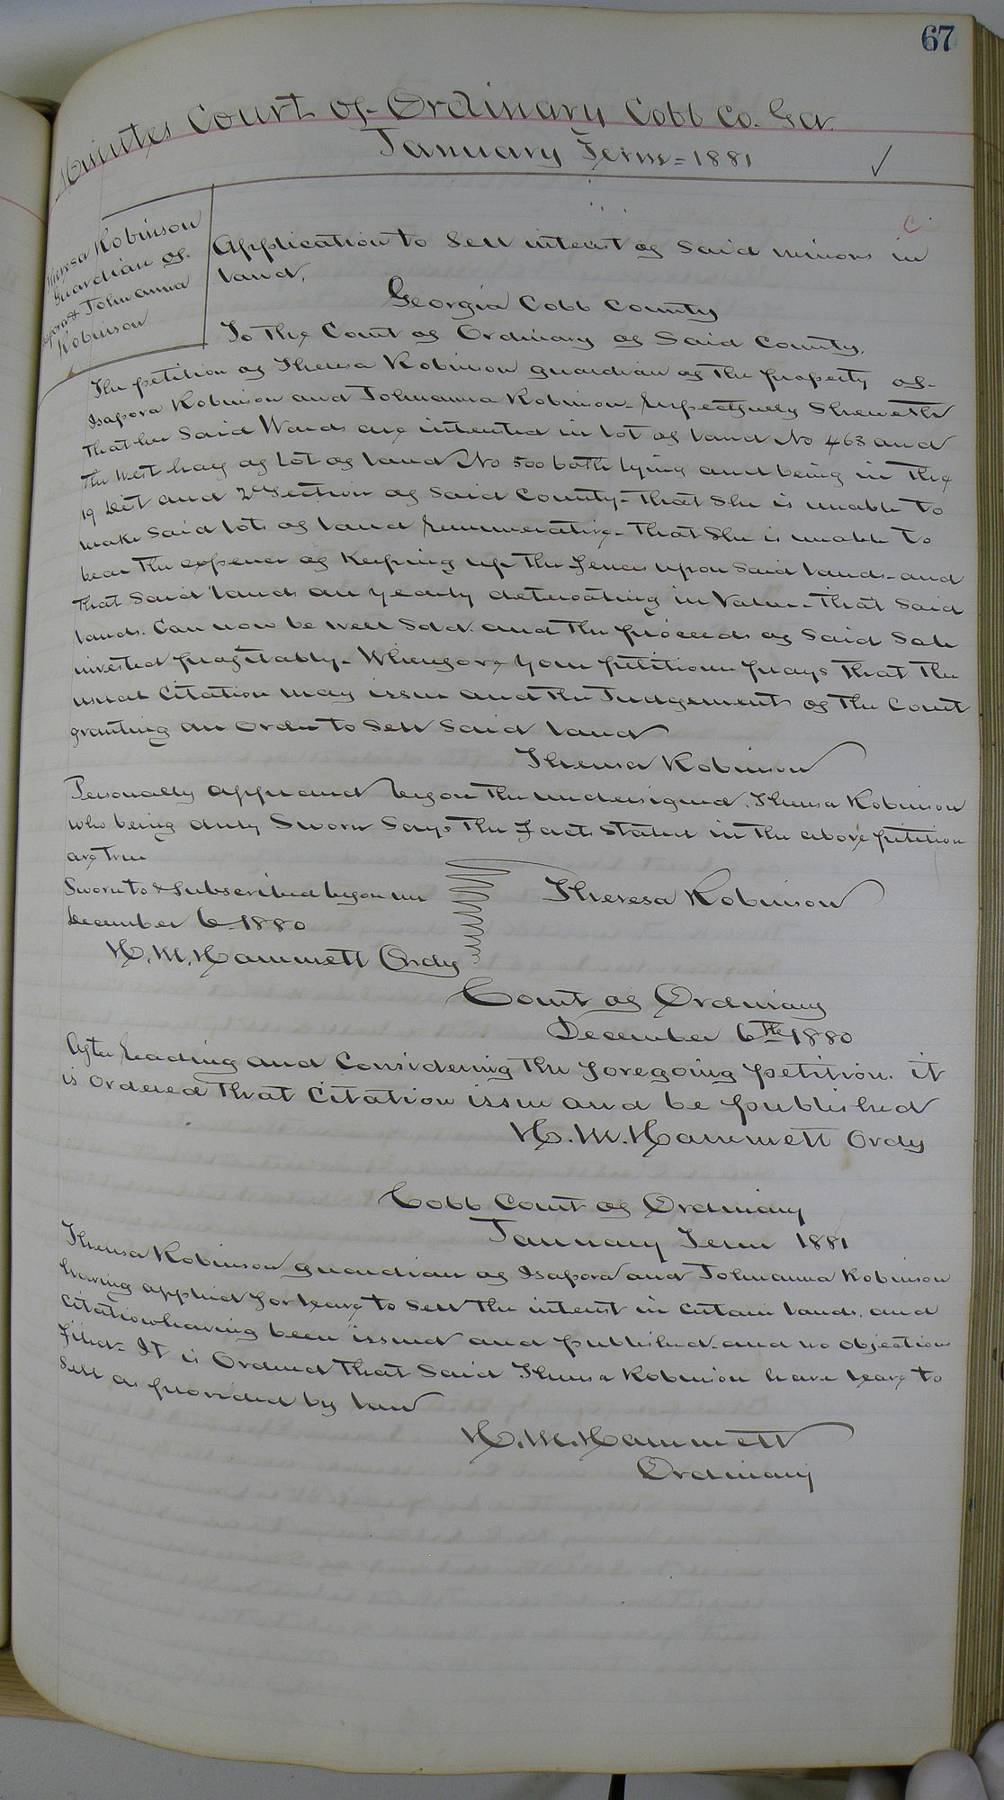 67
Minutes Court of Ordinary Cobb Co. Ga.
January Term = 1881
Theresa Robinson
Guardian of
Isapora & Johnanna
Robinson
C
Application to Sell interest of Said minors in
land.
Georgia Cobb County
To The Court of Ordinary of Said County.
The petition of Theresa Robinson guardian of the property of
Isapora Robinson and Johnanna Robinson - Respectfully Sheweth
That her Said Wards are intrested in lot of land No 468 and
The West half of lot of land No 500 both lying and being in The
19 Dist and 2d Section of Said County - That She is unable to
make Said lots of land remunerative - That She is unable to
bear the expense of Keeping up the fences upon Said lands - and
That Said lands are yearly deteroating in Value - That Said
lands. Can now be well Sold. and the proceeds of Said Sale
invested profitably - Wherefore your petitioner prays That the
usual Citation may issue and the Judgement of the Court
granting an order to Sell Said land
Theresa Robinson
Personally appeared before the undersigned. Theresa Robinson
who being duly Sworn Says The facts Stated in the above petition
are true
Sworn to & Subscribed before me
December 6 1880
Theresa Robinson
H. M. Hammett Ordy
Court of Ordinary
December 6th 1880
After Reading and Considering the foregoing petition. it
is Ordered That Citation issue and be published
H. M. Hammett Ordy
Cobb Court of Ordinary
January Term 1881
Theresa Robinson guardian of Isapora and Johnanna Robinson
having applied for leave to Sell the interest in certain lands. and
Citation having been issued and published. and no objection
filed - It is Ordered That Said Theresa Robinson have leave to
Sell as provided by law
H. M. Hammett
Ordinary